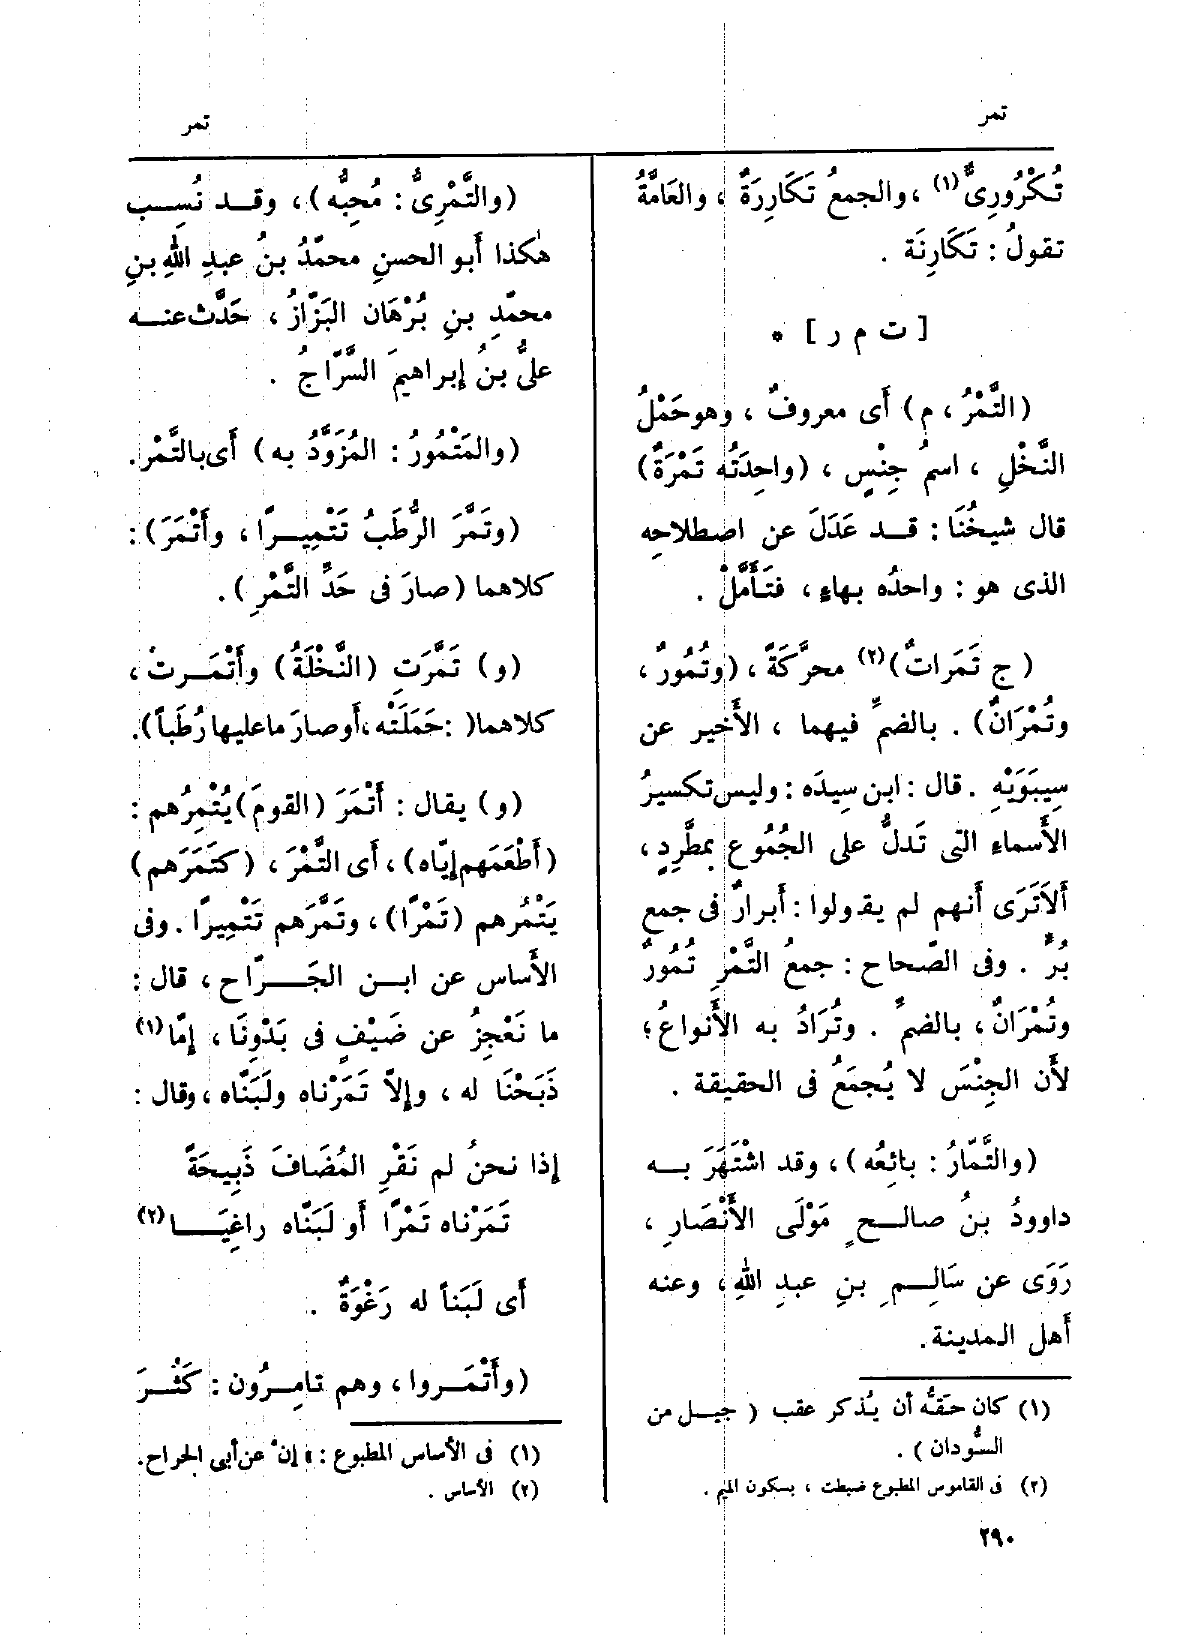 تمر
تمر
تُكْرُورِىٌّ(١)، والجمعُ تَكَارِرَةٌ ، والعَامَّةُ
تقولُ : تَكَارِنَة .
[ ت م ر ] *
(التَّمْرُ ، م) أَى معروفٌ ، وهو حَمْلُ
النَّخْلِ ، اسمُ جِنْسٍ ، (واحِدَتُه تَمْرَةٌ)
قال شيخُنَا : قــد عَدَلَ عن اصطلاحِه
الذى هو : واحدُه بهاءٍ ، فتَأَمَّلْ .
(ج تَمَراتٌ)(٢) محرَّكَةً ، (وتُمُورٌ ،
وتُمْرَانٌ) . بالضمِّ فيهما ، الأَخير عن
سِيبَوَيْهِ . قال : ابن سِيدَه : وليس تكسيرُ
الأَسماءِ التى تَدلُّ على الجُمُوع بمطَّرِدٍ ،
أَلاَ تَرَى أَنهم لم يقولوا : أَبرارٌ فى جمع
بُرٍّ . وفى الصّحاح : جمعُ التَّمْرِ تُمُورٌ
وتُمْرَانٌ ، بالضمِّ . وتُرَادُ به الأَنواعُ ؛
لأَن الجِنْسَ لا يُجمَعُ فى الحقيقة .
(والتَّمّارُ : بائِعُه) ، وقد اشْتَهَرَ بــه
داوودُ بنُ صالــحٍ مَوْلَى الأَنْصَارِ ،
رَوَى عن سَالِــمِ بنِ عبدِ اللهِ ، وعنه
أَهل المدينة.
(١) كان حَقّه أن يُذكر عقب ( جيــل من
السُّودان ) .
(٢) فى القاموس المطبوع ضبطت ، بسكون الميم .
٢٩٠
(والتَّمْرِىُّ : مُحِبُّه) ، وقــد نُسِــب
هٰكذا أَبو الحسنِ محمّدُ بنُ عبدِ اللهِ بنِ
محمّدِ بنِ بُرْهَان البَزّازُ ، حَدَّث عنــه
علىُّ بنُ إِبراهيمَ السَّرّاجُ .
(والمَتْمُورُ : المُزَوَّدُ به) أَى بالتَّمْر.
(وتَمَّرَ الرُّطَبُ تَتْمِيــرًا ، وأَتْمَرَ) :
كلاهما (صارَ فى حَدِّ التَّمْرِ) .
(و) تَمَّرَتِ (النَّخْلَةُ) وأَتْمَــرتْ ،
كلاهما( : حَمَلَتْه، أَو صارَ ما عليها رُطَباً).
(و) يقال : أَتْمَرَ (القومَ) يُتْمِرُهم :
(أَطْعَمَهم إِيّاه) ، أَى التَّمْرَ ، (كتَمَرَهم)
يَتْمُرُهم (تَمْرًا) ، وتَمَّرَهم تَتْمِيرًا . وفى
الأَساس عن ابــن الجَــرّاح ، قال :
ما نَعْجِزُ عن ضَيْفٍ فى بَدْوِنَا ، إِمّا(١)
ذَبَحْنَا له ، وإِلاّ تَمَرْناه ولَبَنّاه ، وقال :
إِذا نحنُ لم نَقْرِ المُضَافَ ذَبِيحَةً
تَمَرْناه تَمْرًا أَو لَبَنّاه راغِيَــا(٢)
أَى لَبَناً له رَغْوَةٌ .
(وأَتْمَــروا ، وهم تامِــرُون : كَثُــرَ
(١) فى الأساس المطبوع : « إن ْ عن أبى الجراح.
(٢) الأساس .